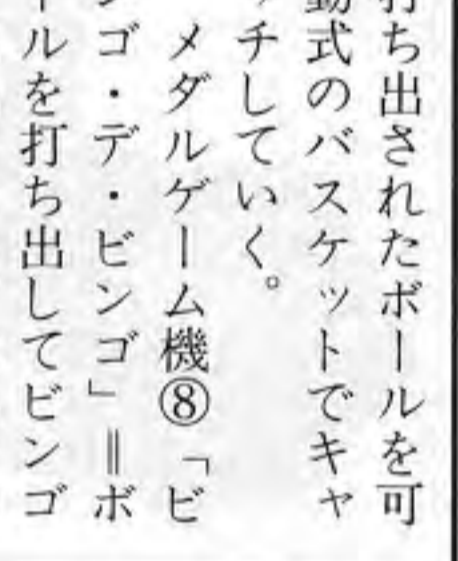 打ち出されたボールを可
動式のバスケットでキャ
ッチしていく。
メダルゲーム機⑧「ビ
ンゴ・デ・ビンゴ」＝ボ
ールを打ち出してビンゴ